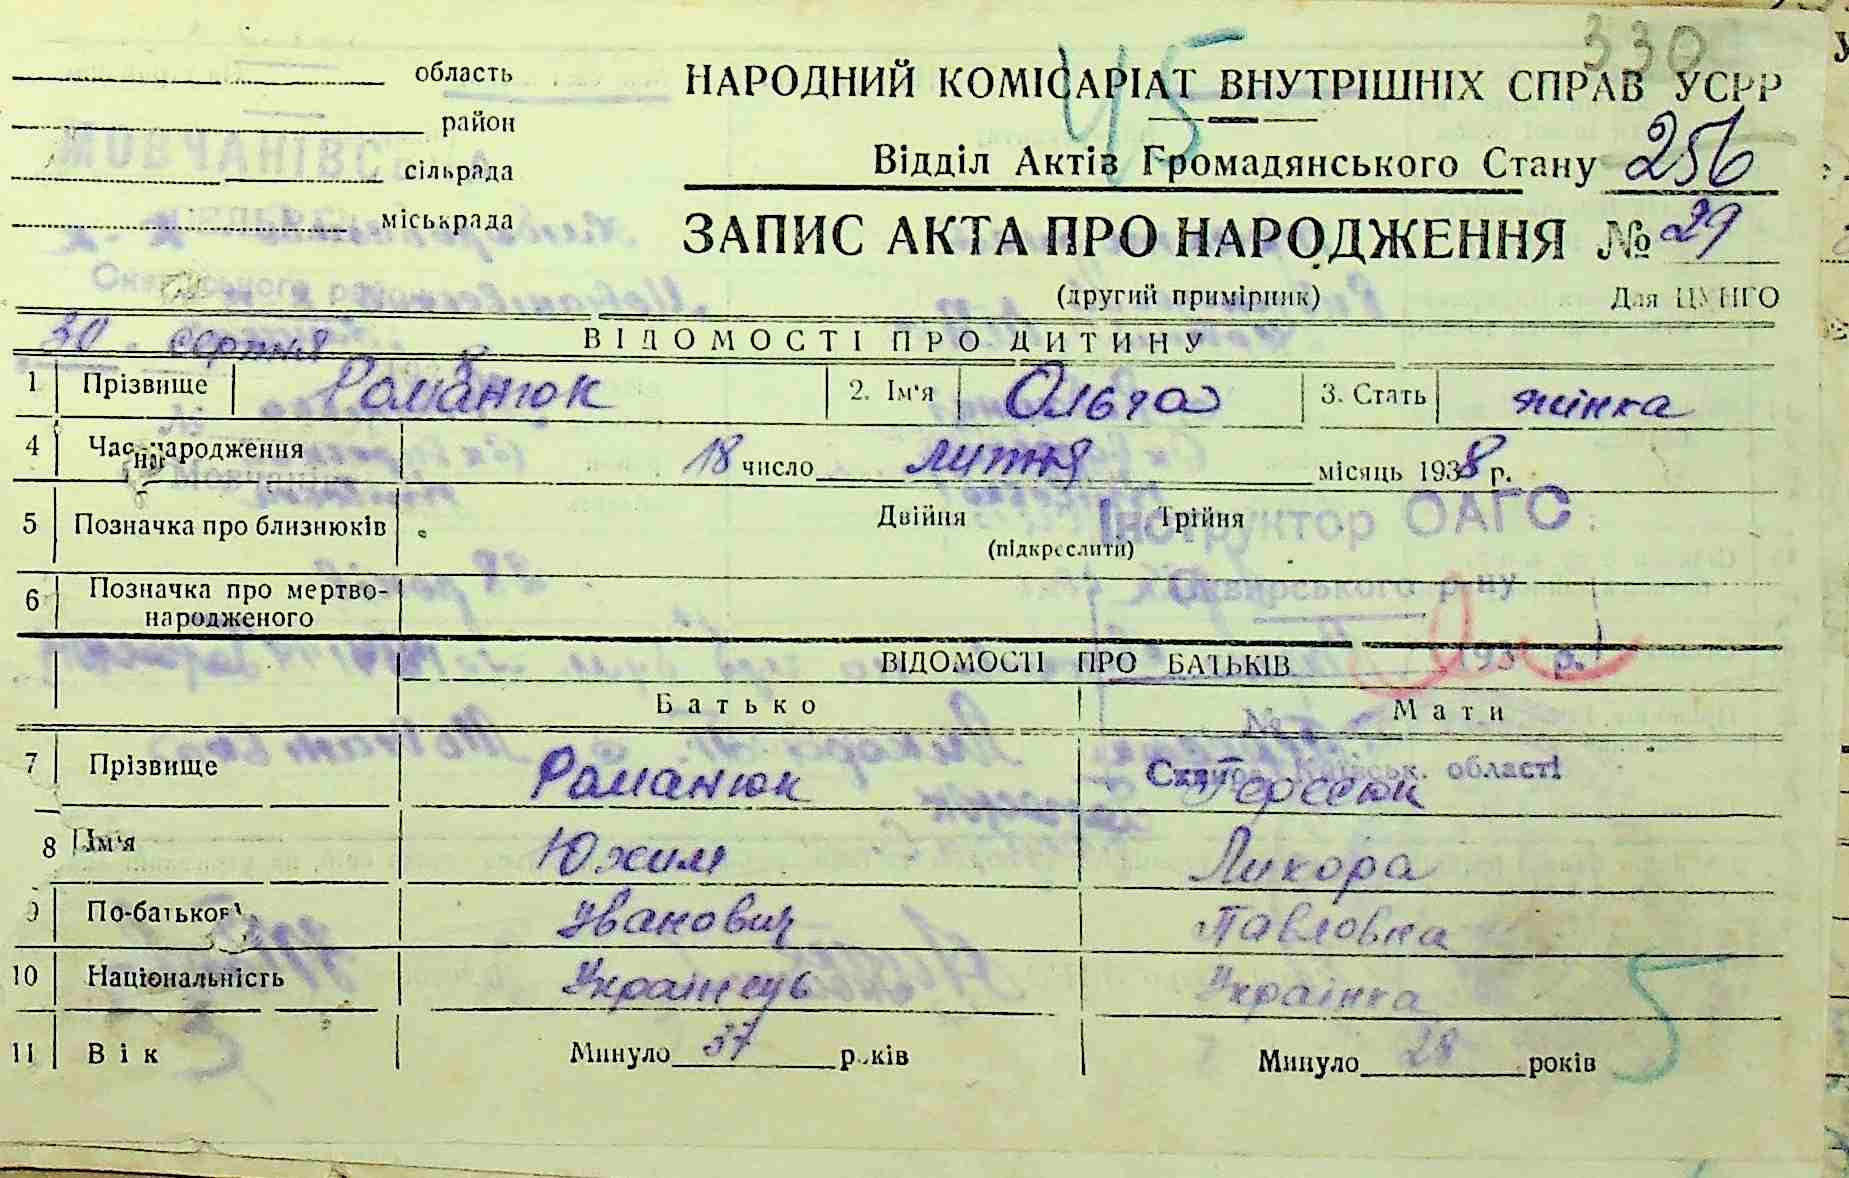 330
45
область
район
сільрада
міськрада
МОВЧАНІВСЬКА
НАРОДНИЙ КОМІСАРІАТ ВНУТРІШНІХ СПРАВ УСРР
Відділ Актів Громадянського Стану 256
ЗАПИС АКТА ПРО НАРОДЖЕННЯ № 29
(другий примірник) Для ЦУНГО
30 серпня
ВІДОМОСТІ ПРО ДИТИНУ
1 Прізвище Романюк 2. Ім'я Ольга 3. Стать жінка
4 Час народження 18 число лютня місяць 1938 р.
5 Позначка про близнюків Двійня Трійня
(підкреслити)
Інструктор ОАГС
6 Позначка про мертво-
народженого
Сквирського р-ну
193 р.
ВІДОМОСТІ ПРО БАТЬКІВ
Батько Мати
№
7 Прізвище Романюк Гересюк
Київськ. області
8 Ім'я Юхим Ликора
9 По-батькові Іванович Павловна
10 Національність Українець Українка
11 Вік Минуло 37 років Минуло 28 років
5